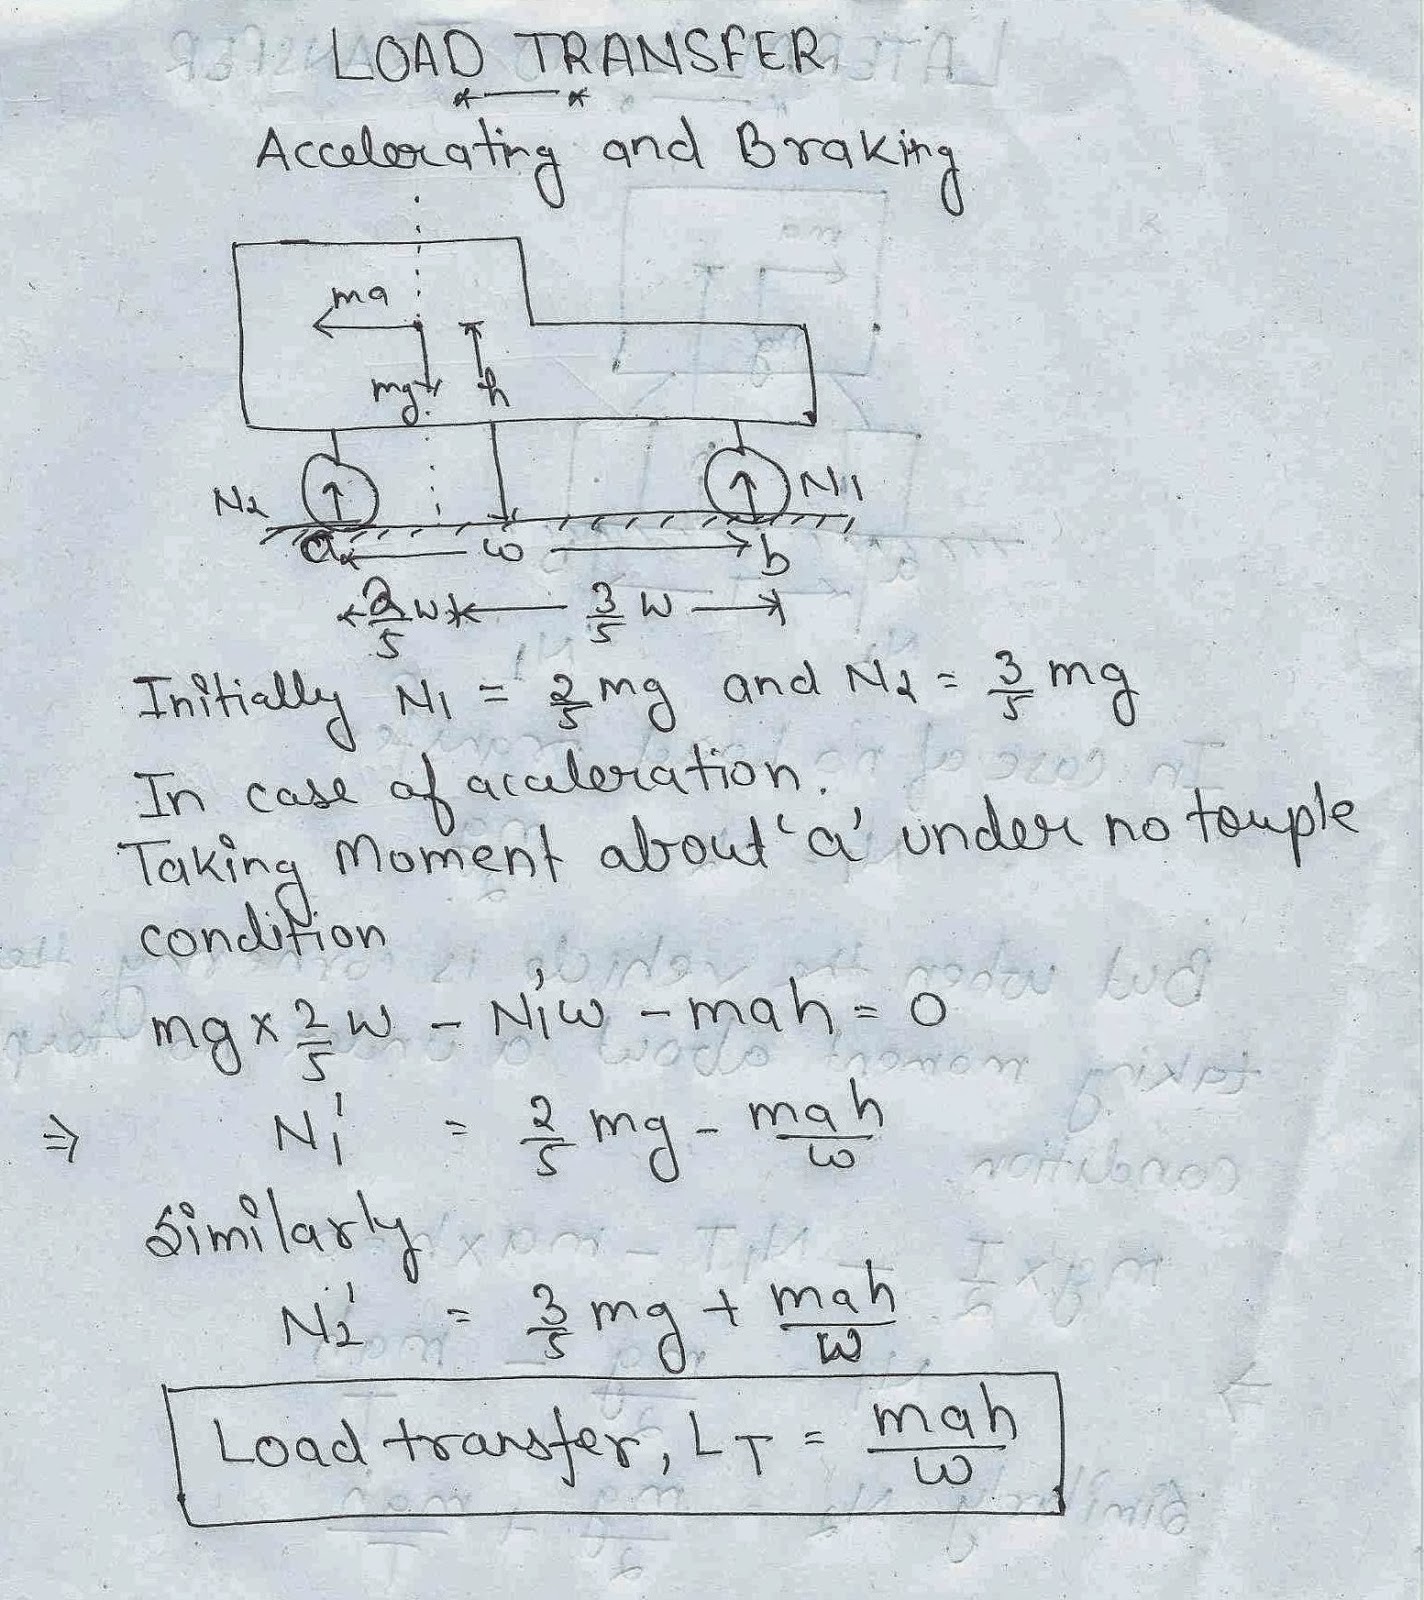 LOAD TRANSFER
Accelerating and Braking
ma
mg
h
N2
N1
a
w
b
2/5 w
3/5 w
Initially N1 = 2/5 mg and N2 = 3/5 mg
In case of acceleration.
Taking Moment about 'a' under no touple
condition
mg x 2/5 w - N1'w - mah = 0
⇒ N1' = 2/5 mg - mah/w
Similarly
N2' = 3/5 mg + mah/w
Load transfer, LT = mah/w